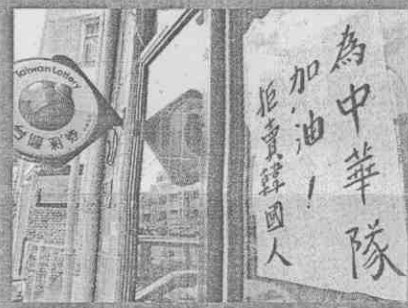 Taiwan Lottery
台灣彩券
為中華隊
加油！
拒賣韓國人